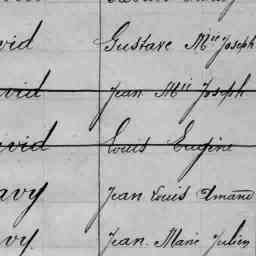 vid Gustave Mie Joseph
vid Jean Mie Joseph
vid Louis Eugine
avy Jean Louis Amand
vy Jean Marie Julien